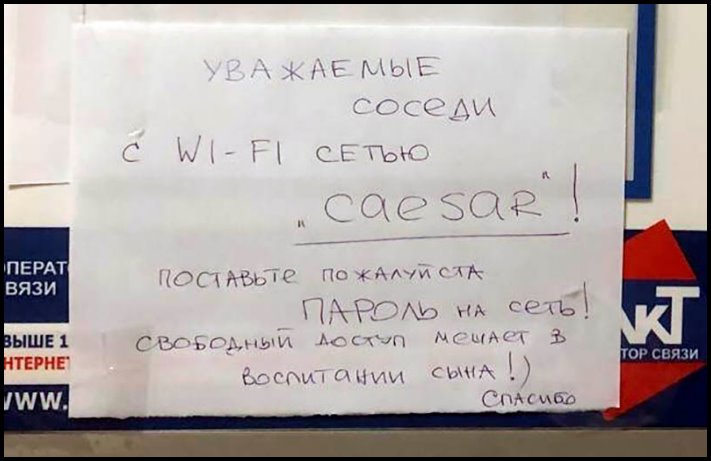 УВАЖАЕМЫЕ
СОСЕДИ
С WI-FI СЕТЬЮ
„CAESAR"!
ПОСТАВЬТЕ ПОЖАЛУЙСТА
ПАРОЛЬ НА СЕТЬ!
СВОБОДНЫЙ ДОСТУП МЕШАЕТ В
ВОСПИТАНИИ СЫНА!)
СПАСИБО
ПЕРАТ
ВЯЗИ
ВЫШЕ 1
НТЕРНЕ
WWW.
АКТ
ТОР СВЯЗИ